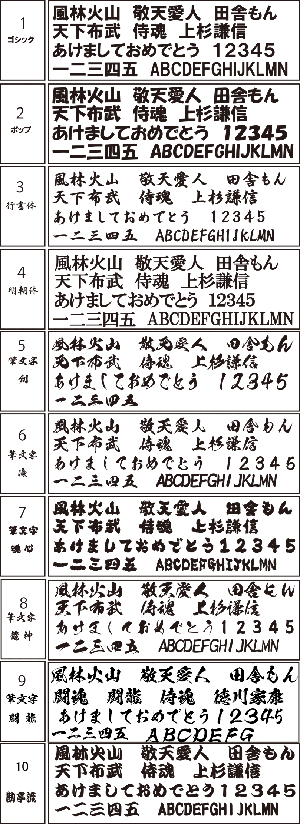 1
ゴシック
風林火山 敬天愛人 田舎もん
天下布武 侍魂 上杉謙信
あけましておめでとう 12345
一二三四五 ABCDEFGHIJKLMN
2
ポップ
風林火山 敬天愛人 田舎もん
天下布武 侍魂 上杉謙信
あけましておめでとう 12345
一二三四五 ABCDEFGHIJKLMN
3
行書体
風林火山 敬天愛人 田舎もん
天下布武 侍魂 上杉謙信
あけましておめでとう 12345
一二三四五 ABCDEFGHIJKLMN
4
明朝体
風林火山 敬天愛人 田舎もん
天下布武 侍魂 上杉謙信
あけましておめでとう 12345
一二三四五 ABCDEFGHIJKLMN
5
筆文字
風林火山 敬天愛人 田舎もん
天下布武 侍魂 上杉謙信
あけましておめでとう 12345
一二三四五
6
筆文字
風林火山 敬天愛人 田舎もん
天下布武 侍魂 上杉謙信
あけましておめでとう 12345
一二三四五 ABCDEFGHIJKLMN
7
筆文字
魂心
風林火山 敬天愛人 田舎もん
天下布武 侍魂 上杉謙信
あけましておめでとう12345
一二三四五 ABCDEFGHIJKLMN
8
筆文字
龍神
風林火山 敬天愛人 田舎もん
天下布武 侍魂 上杉謙信
あけましておめでとう12345
一二三四五 ABCDEFGHIJKLMN
9
筆文字
闘龍
風林火山 敬天愛人 田舎もん
闘魂 闘龍 侍魂 徳川家康
あけましておめでとう12345
一二三四五 ABCDEFG
10
勘亭流
風林火山 敬天愛人 田舎もん
天下布武 侍魂 上杉謙信
あけましておめでとう12345
一二三四五 ABCDEFGHIJKLMN